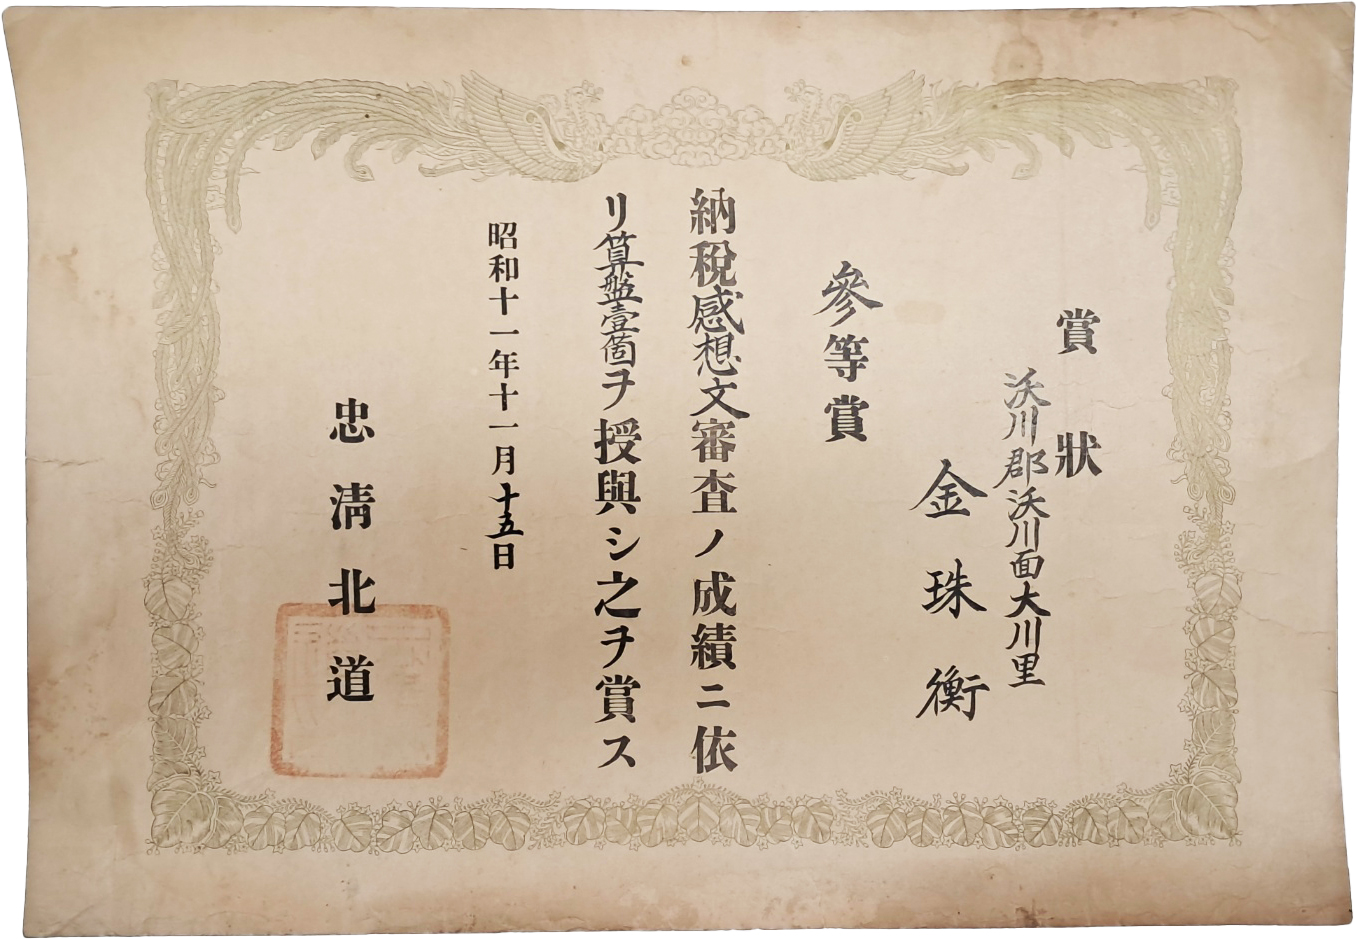 賞狀
沃川郡沃川面大川里
金珠衡
參等賞
納稅感想文審査ノ成績ニ依
リ算盤壹箇ヲ授與シ之ヲ賞ス
昭和十一年十一月十五日
忠淸北道